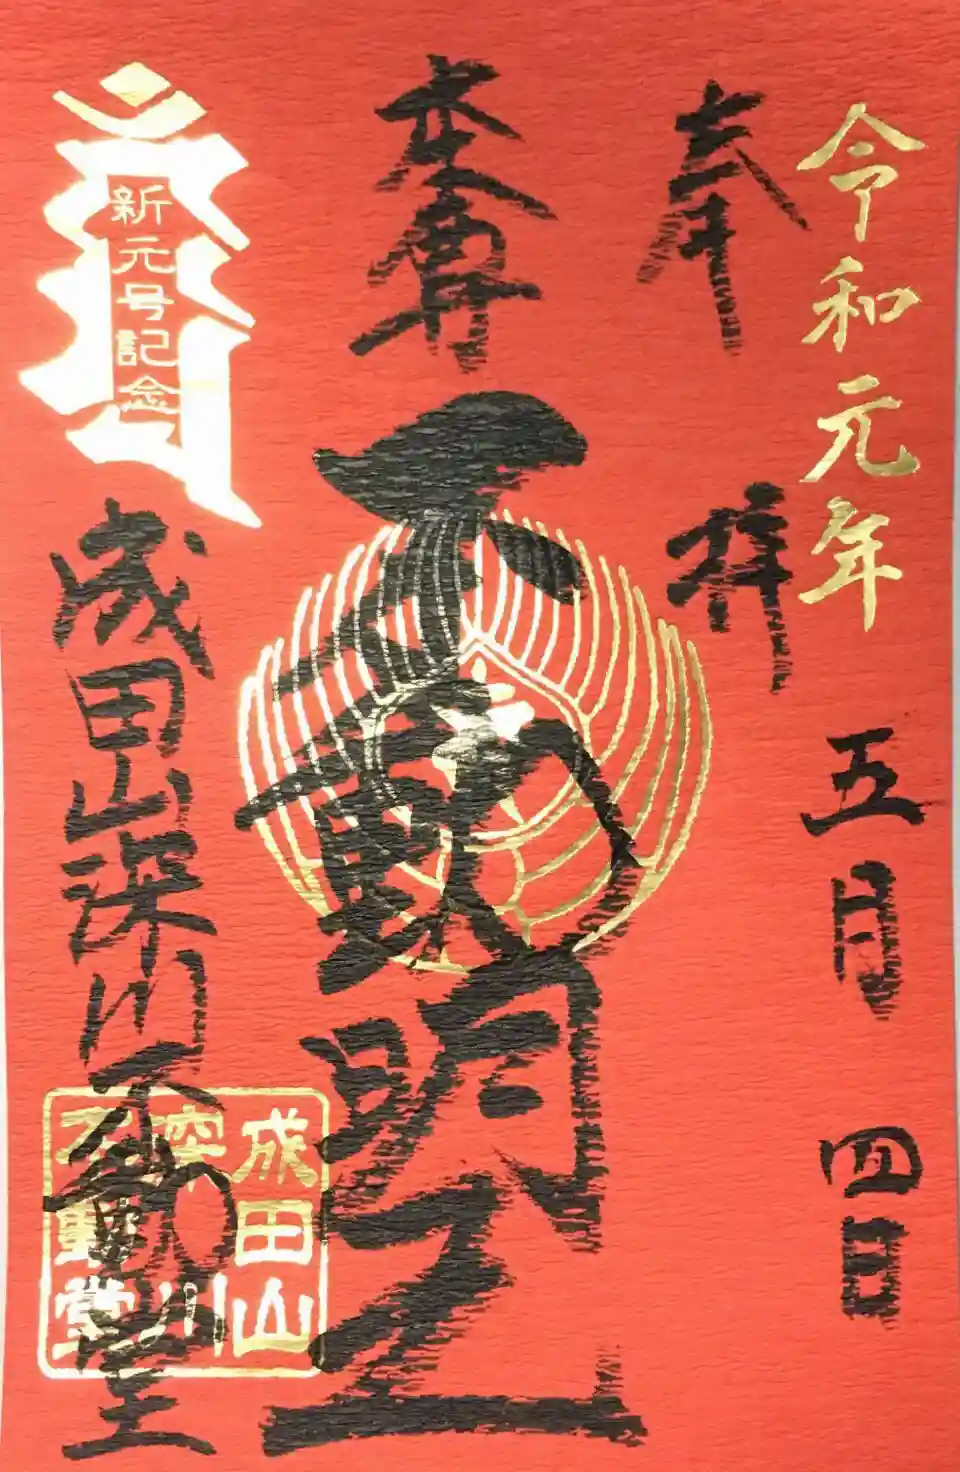 令和元年五月四日
奉拝
本尊
不動明王
新元号記念
成田山深川不動堂
成田山
深川
不動堂